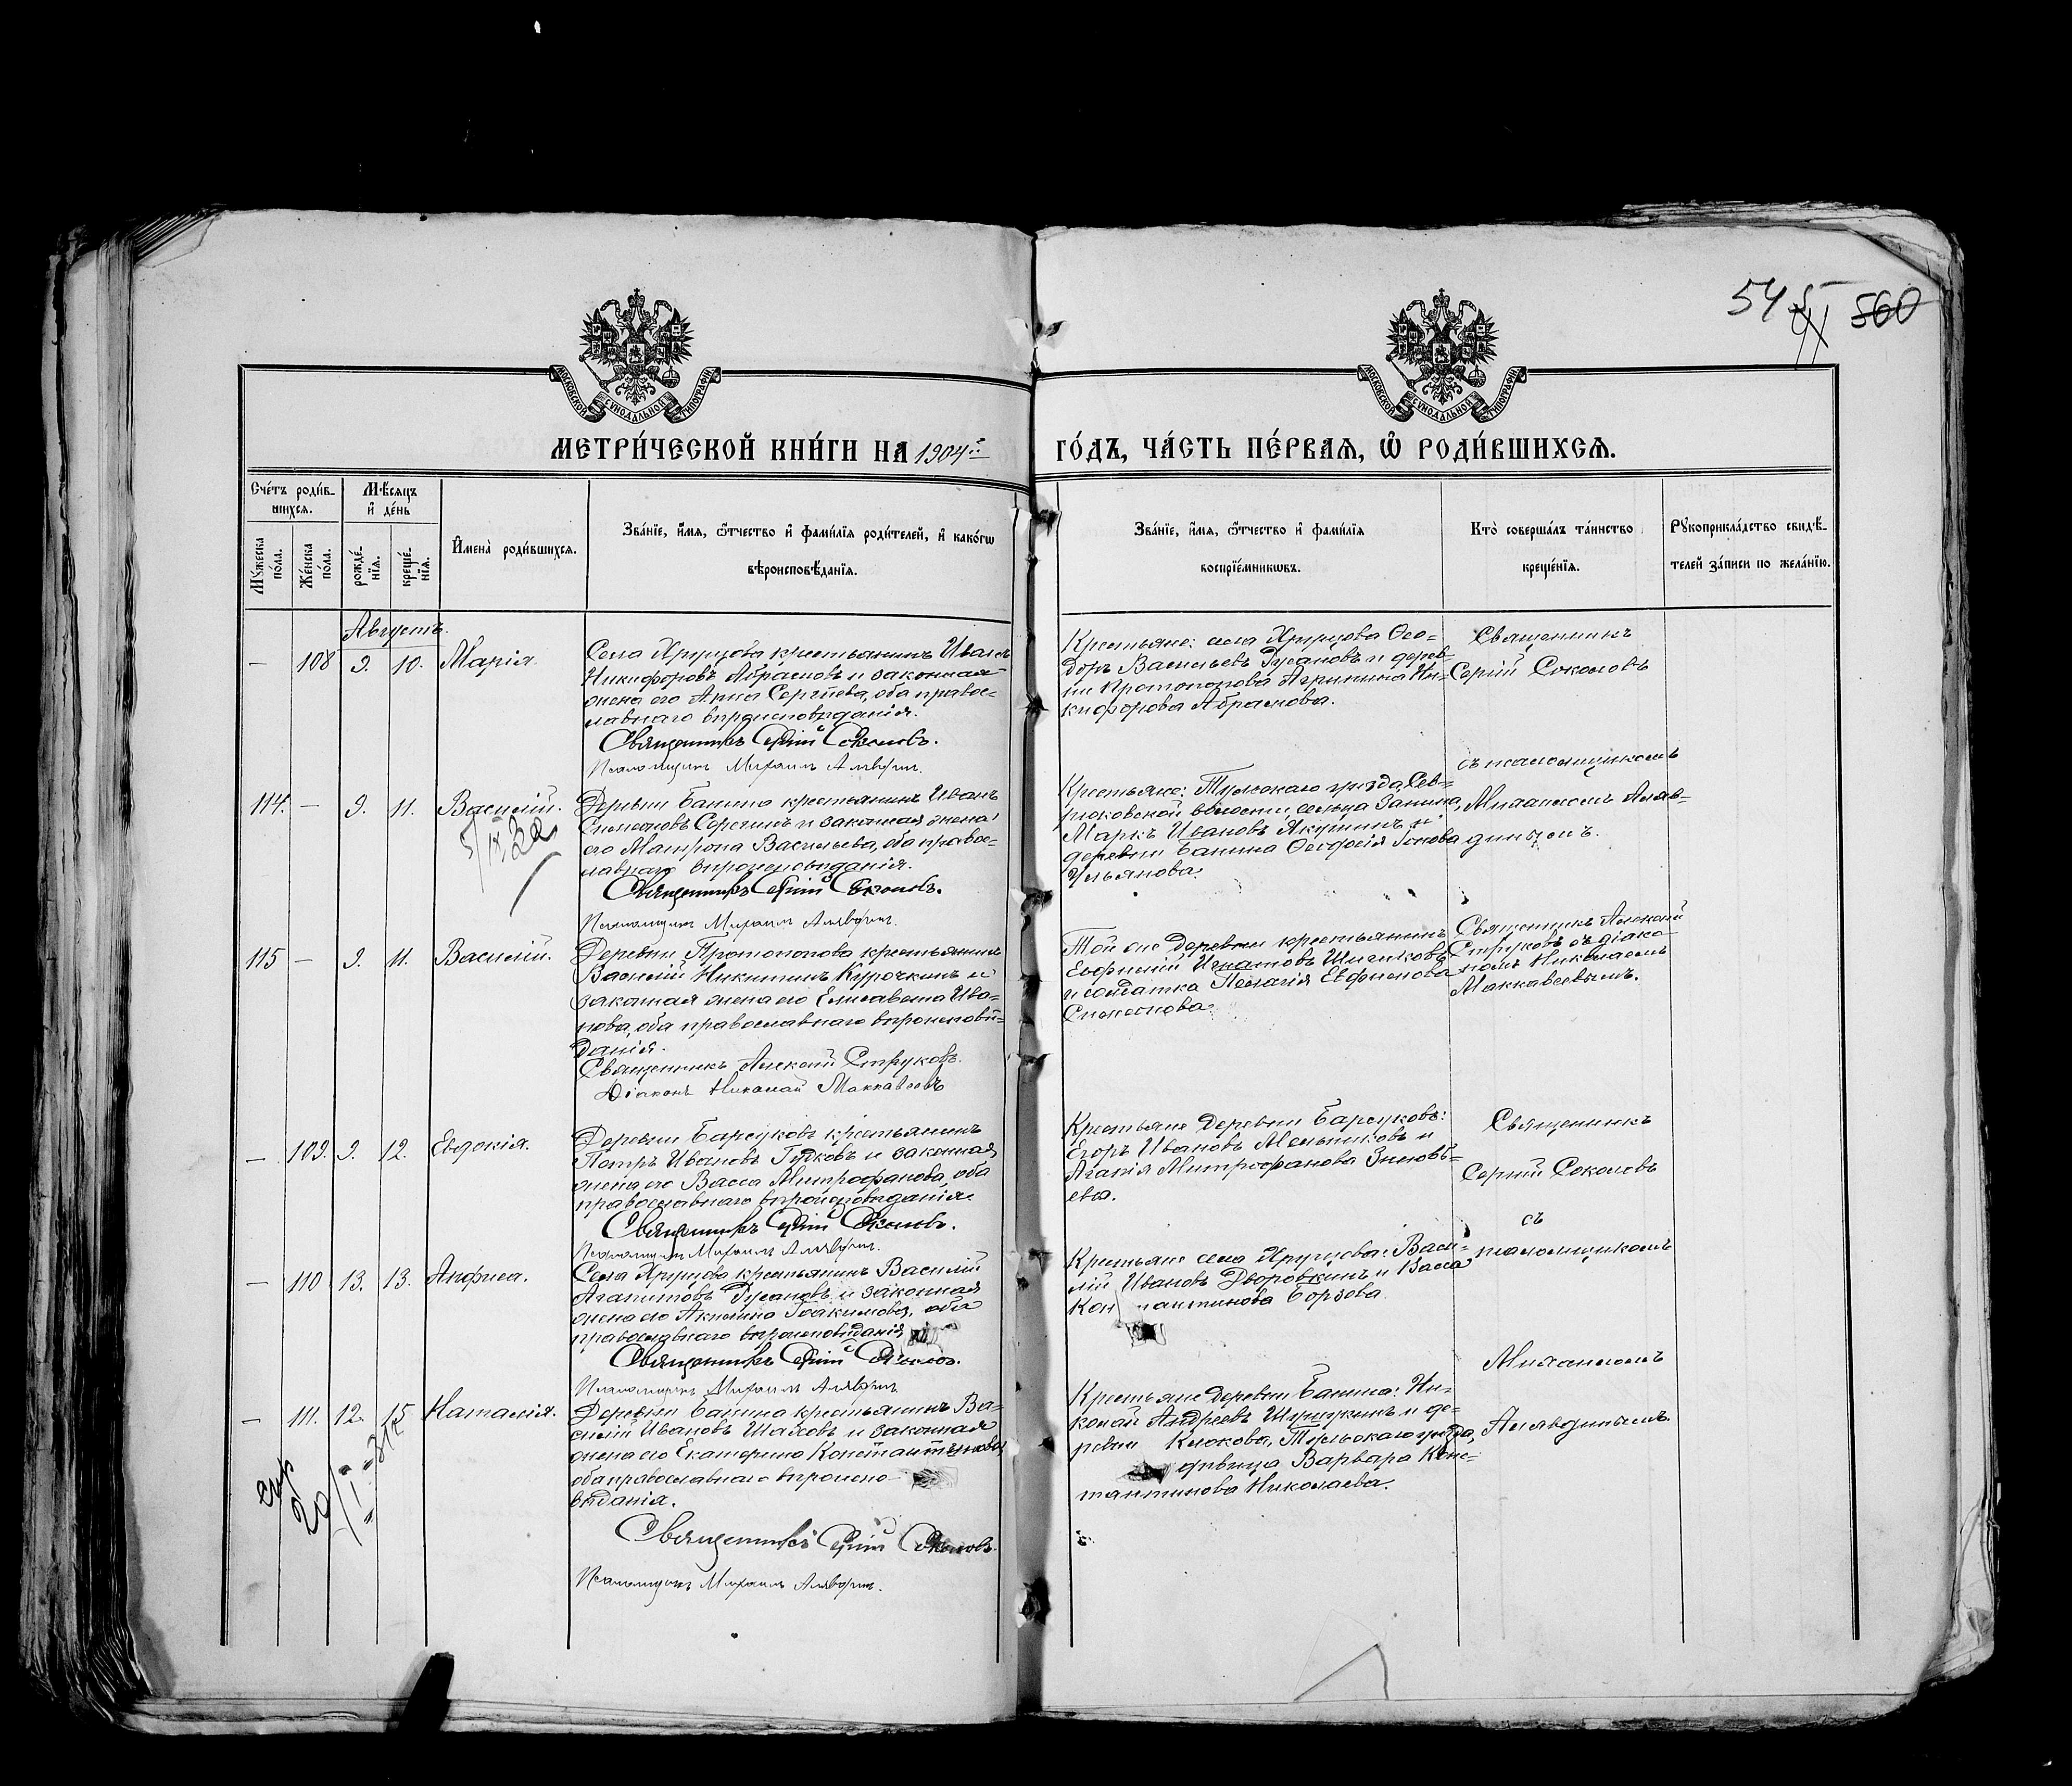 545 560
МОСКОВСКОЙ СѴНОДАЛЬНОЙ ТИПОГРАФІИ
МОСКОВСКОЙ СѴНОДАЛЬНОЙ ТИПОГРАФІИ
МЕТРИ́ЧЕСКОЙ КНИ́ГИ НА 1904й ГО́ДЪ, ЧА́СТЬ ПЕ́РВАѦ, Ѡ҆ РОДИ́ВШИХСѦ.
Сче́тъ роди́в-
шихсѧ.
Мꙋ́жеска
по́ла.
Же́нска
по́ла.
Мѣ́сѧцъ
и҆ де́нь
рожде́-
нїѧ.
креще́-
нїѧ.
И҆мена̀ роди́вшихсѧ.
Зва́нїе, и҆́мѧ, ѻ҆́тчество и҆ фами́лїѧ роди́телей, и҆ како́гѡ
вѣроисповѣ́данїѧ.
Зва́нїе, и҆́мѧ, ѻ҆́тчество и҆ фами́лїѧ
воспрїе́мникѡвъ.
Кто̀ соверша́лъ та́инство
креще́нїѧ.
Рꙋкоприкла́дство свидѣ́-
телей за́писи по жела́нїю.
Августъ.
— 108 9. 10. Марія.
Села Хрущова крестьянинъ Иванъ
Никифоровъ Абрамовъ и законная
жена его Анна Сергѣева, оба правос-
лавнаго вѣроисповѣданія.
Священникъ Сергій Соколовъ.
Псаломщикъ Михаилъ Алявдинъ.
Крестьяне: села Хрущова Ѳео-
доръ Васильевъ Гусаковъ и дерев-
ни Протопопова Агрипина Ни-
кифорова Абрамова.
Священникъ
Сергій Соколовъ
съ псаломщикомъ
114. — 9. 11. Василій.
Деревни Банина крестьянинъ Иванъ
Симеоновъ Серегинъ и законная жена
его Матрона Васильева, оба правос-
лавнаго вѣроисповѣданія.
Священникъ Сергій Соколовъ.
Псаломщикъ Михаилъ Алявдинъ.
Крестьяне: Тульскаго уѣзда, Сев-
рюковской волости, сельца Занина,
Маркъ Ивановъ Якушинъ и
деревни Банина Ѳеодосія Іонова
Ульянова.
Михаиломъ Аляв-
динымъ.
115 — 9. 11. Василій.
Деревни Протопопова крестьянинъ
Василій Никитинъ Курочкинъ и
законная жена его Елисавета Ива-
нова, оба православнаго вѣроисповѣ-
данія.
Священникъ Алексій Струковъ.
Діаконъ Николай Маккавеевъ
Той же деревни крестьянинъ
Евфимій Игнатовъ
и солдатка Пелагія Евфимова
Симеонова.
Священникъ Алексій
Струковъ съ діако-
номъ Николаемъ
Маккавеевымъ.
— 109. 9. 12. Евдокія.
Деревни Барсуковъ крестьянинъ
Петръ Ивановъ Гудковъ и законная
жена его Васса Митрофанова, оба
православнаго вѣроисповѣданія.
Священникъ Сергій Соколовъ.
Псаломщикъ Михаилъ Алявдинъ.
Крестьяне деревни Барсуковъ:
Егоръ Ивановъ Мельниковъ и
Агапія Митрофанова Зиновь-
ева.
Священникъ
Сергій Соколовъ
съ
— 110 13. 13. Анфиса.
Села Хрущова крестьянинъ Василій
Агапитовъ Гусаковъ и законная
жена его Акилина Іоакимова, оба
православнаго вѣроисповѣданія
Священникъ Сергій Соколовъ.
Псаломщикъ Михаилъ Алявдинъ.
Крестьяне села Хрущова: Васи-
лій Ивановъ Дворовкинъ и Васса
Константинова Борзова.
псаломщикомъ
Михаиломъ
— 111. 12. 15 Наталія.
Деревни Банина крестьянинъ Ва-
силій Ивановъ Шаховъ и законная
жена его Екатерина Константинова,
оба православнаго вѣроиспо-
вѣданія.
Священникъ Сергій Соколовъ.
Псаломщикъ Михаилъ Алявдинъ.
Крестьяне деревни Банина: Ни-
колай Андреевъ Шушукинъ и де-
ревни Клокова, Тульскаго уѣзда,
дѣвица Варвара Конс-
тантинова Николаева.
Алявдинымъ.